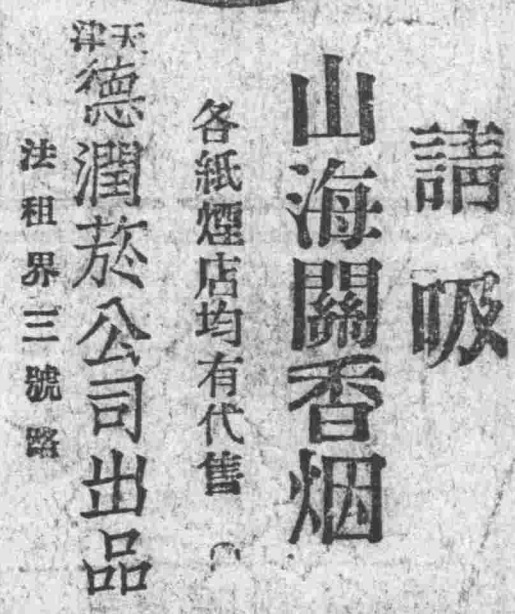 請吸
山海關香烟
各紙煙店均有代售
天津德潤菸公司出品
法租界三號路